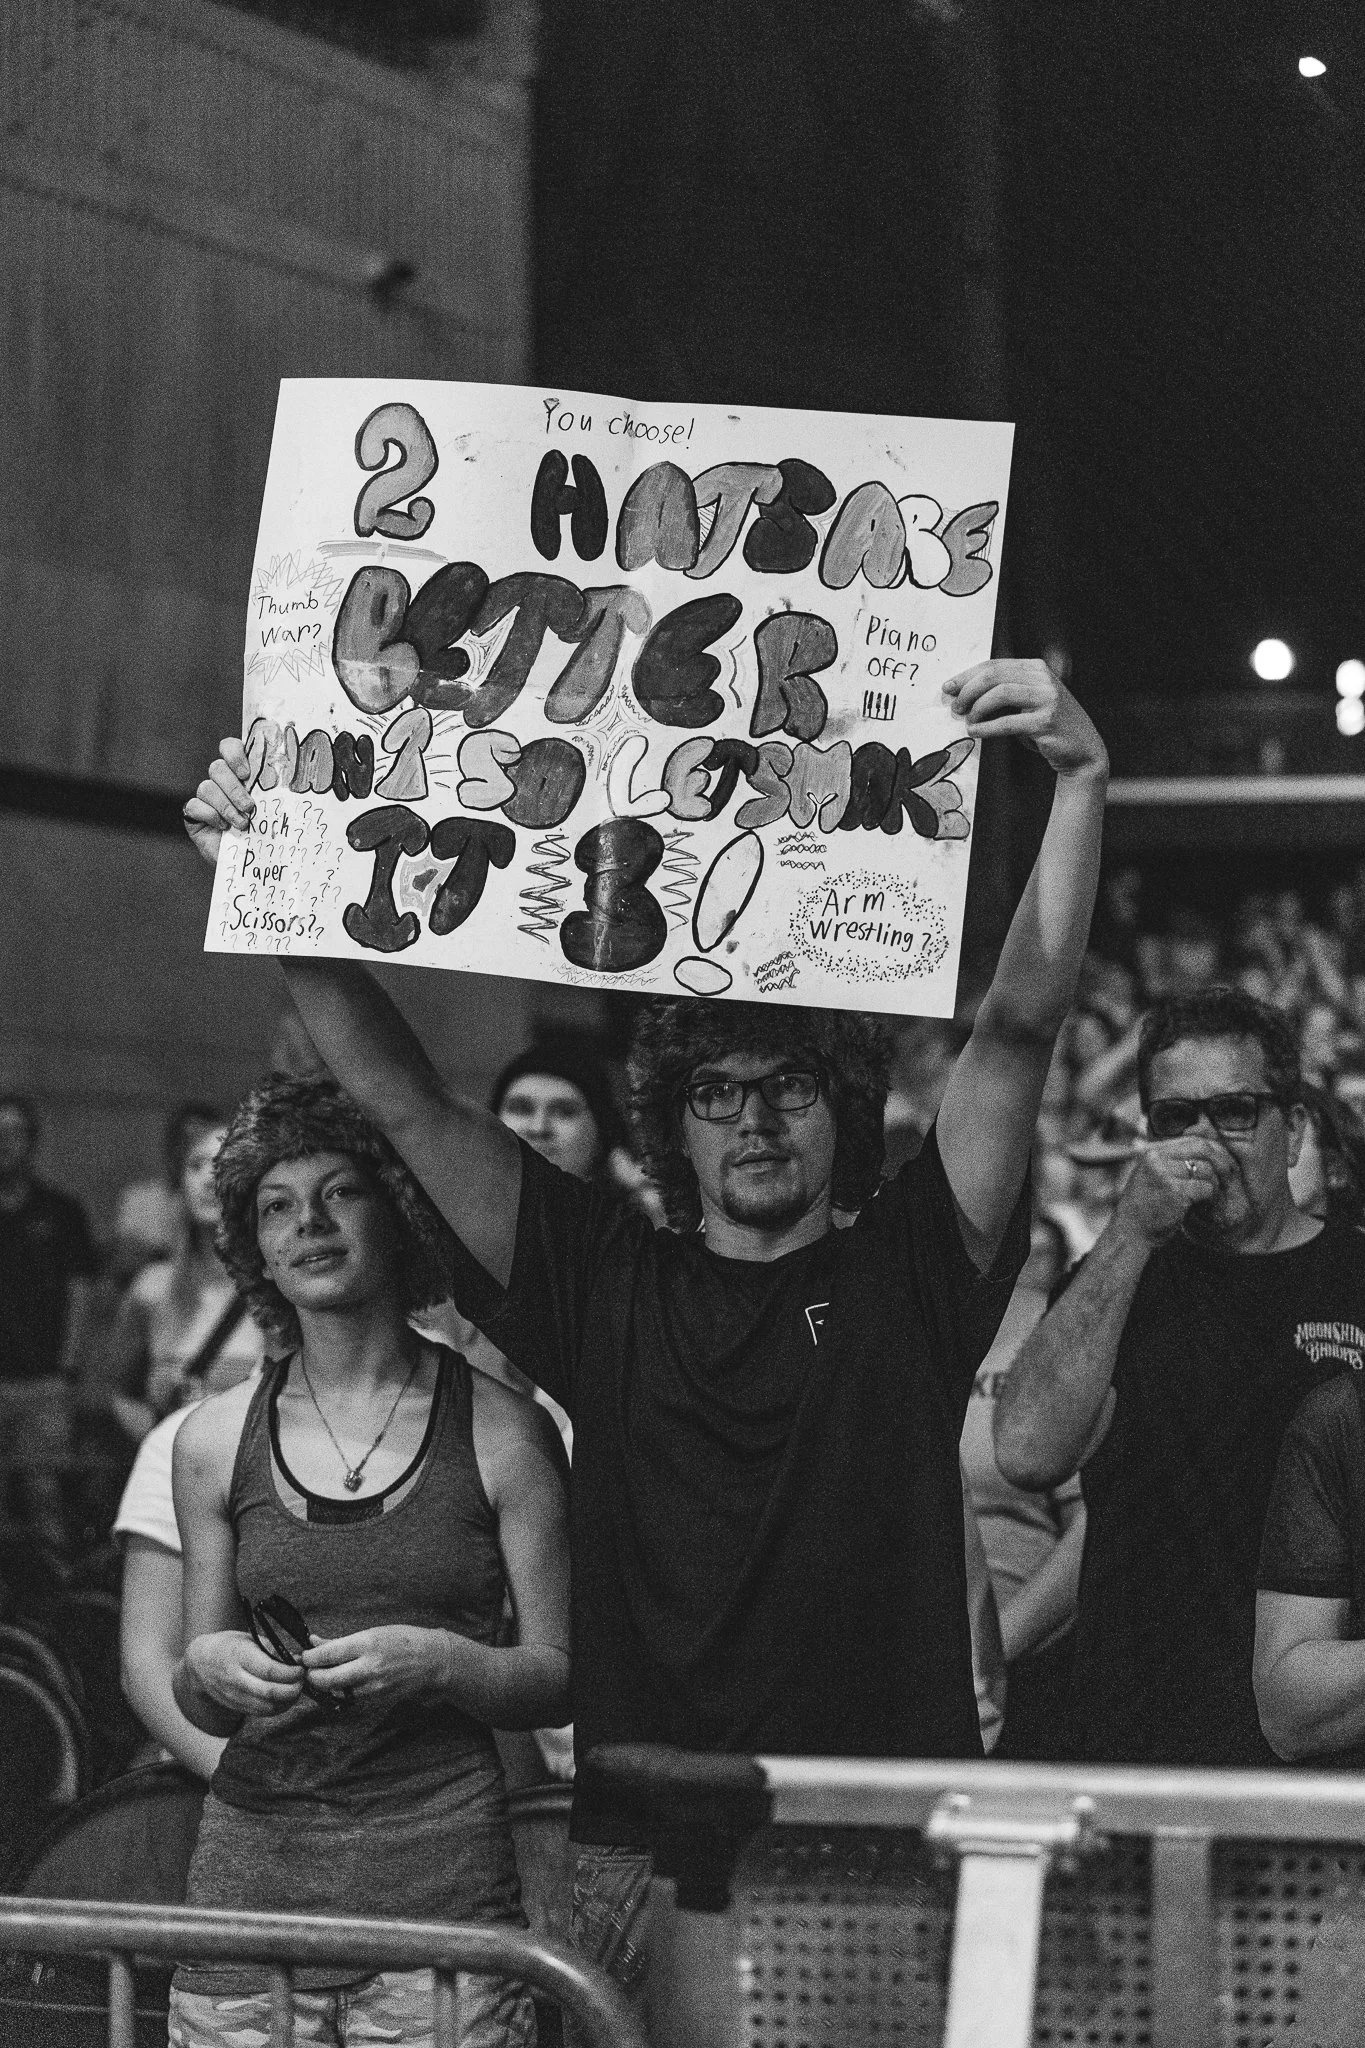 You choose!
2 HATS ARE
BETTER
THAN 1 SO LETS MAKE
IT 3!
Thumb
War?
Piano
OFF?
Rock
Paper
Scissors??
Arm
Wrestling?
F
MOONSHIN
BANDITS
KE